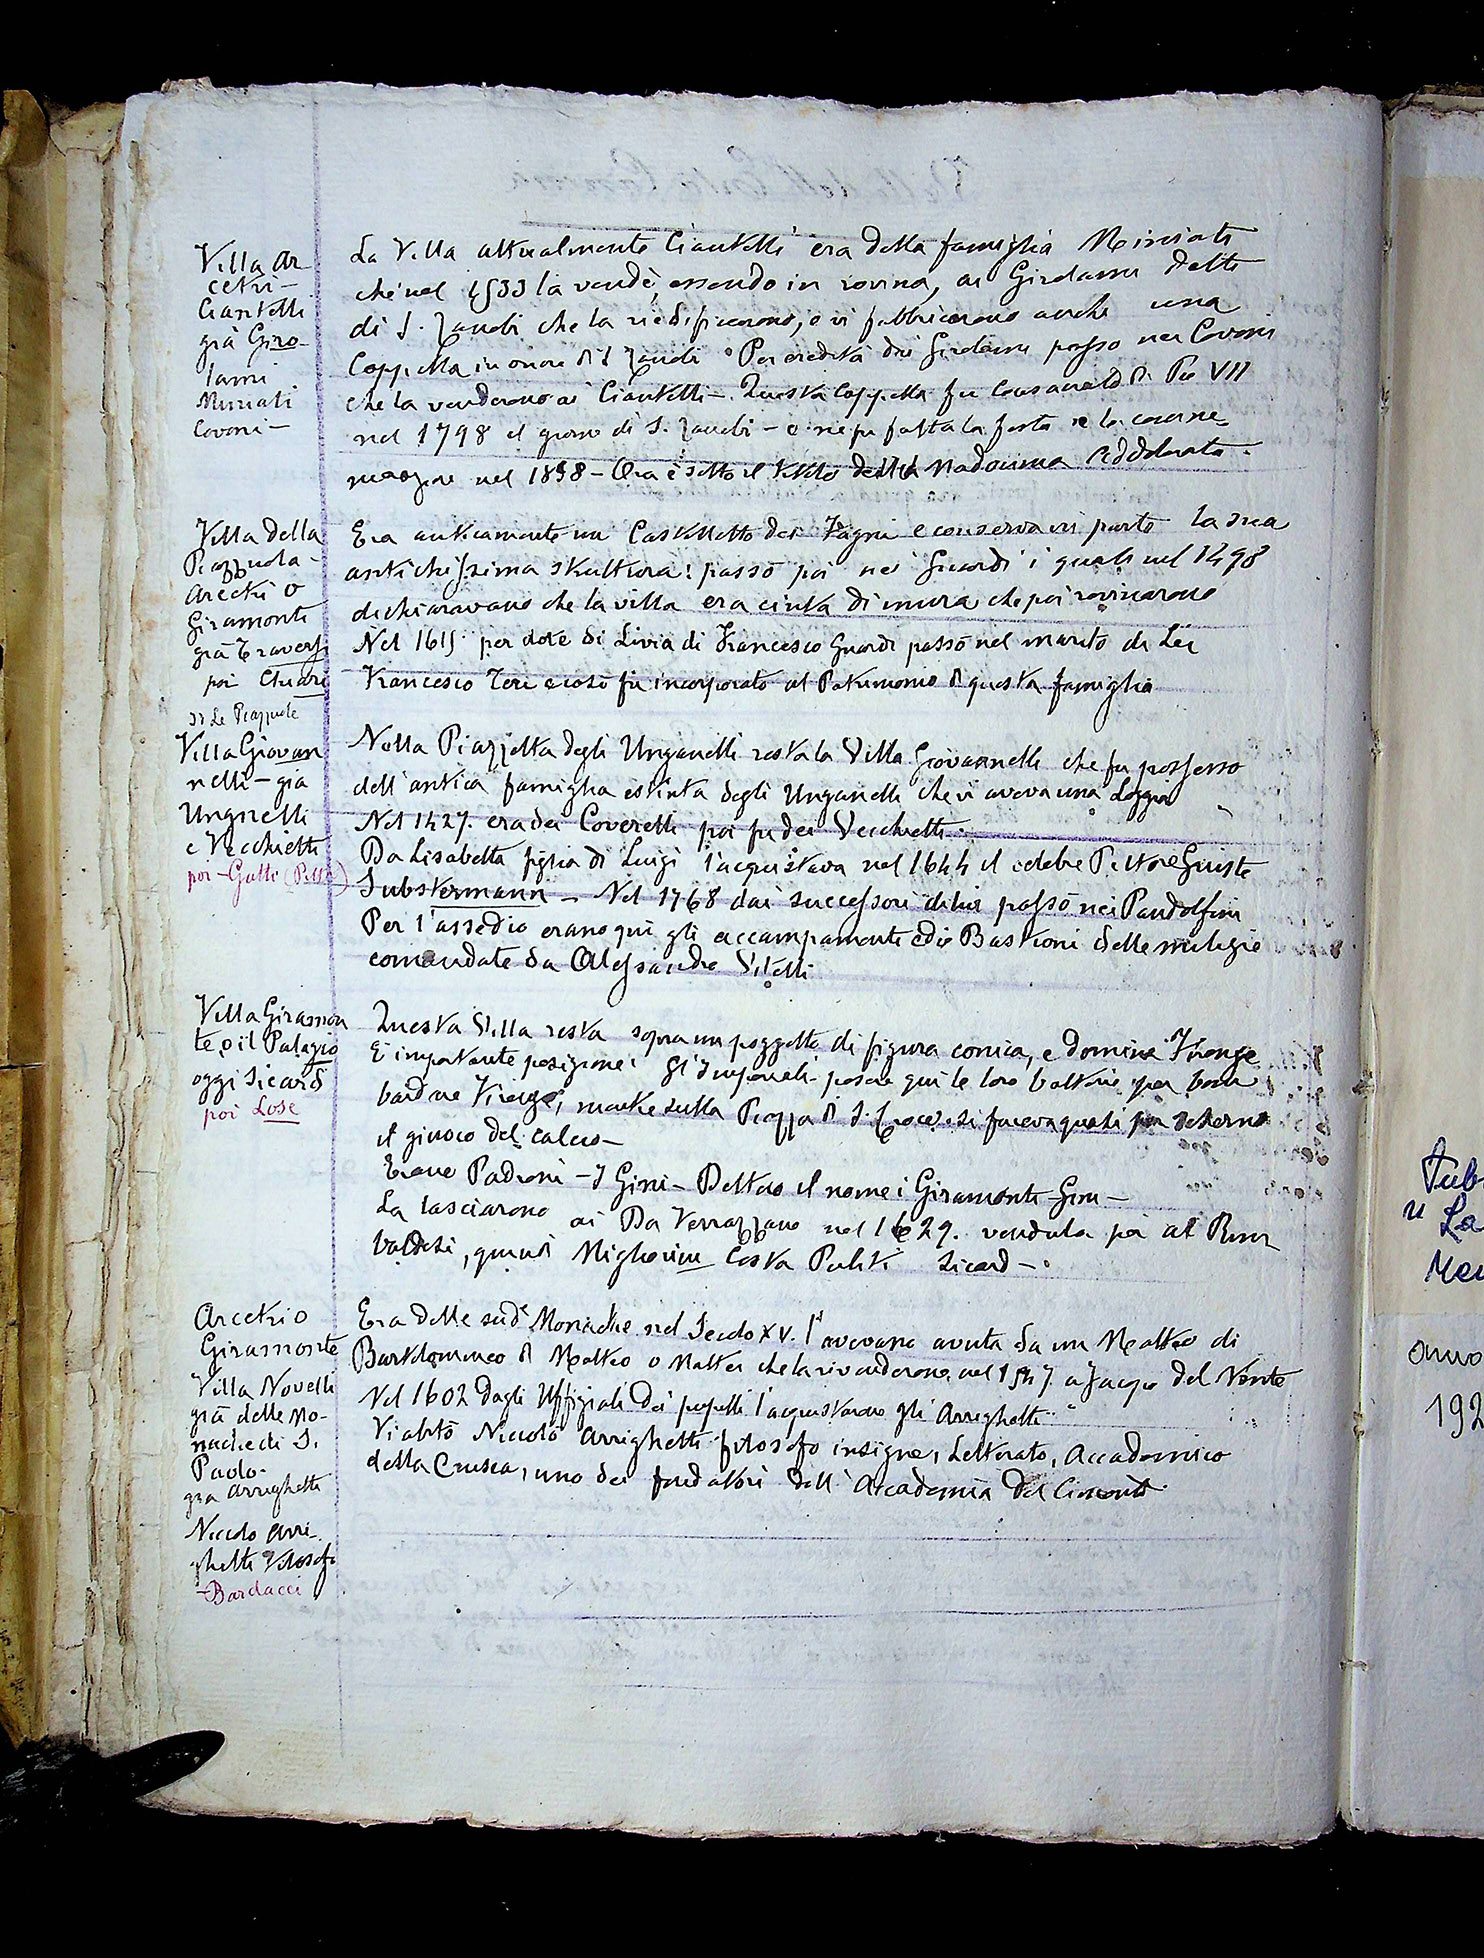 Villa Ar
cetri –
Ciantelli
già Giro-
lami
Miniati
Covoni –
La Villa attualmente Ciantelli era della famiglia Miniati
che nel 1533 la vendè, essendo in rovina, ai Girolami detti
di S. Zanobi che la riedificarono, e vi fabbricarono anche una
Cappella in onore di S Zanobi. Per eredità dei Girolami passò nei Covoni
che la venderono ai Ciantelli – Questa Cappella fu consacrata da Pio VII
nel 1798 il giorno di S. Zanobi – e ne fu fatta la festa e la comme
morazione nel 1898 – Ora è sotto il titolo della Madonna Addolorata.
Villa della
Piazzuola –
Arcetri o
Giramonte
già Traversi
poi Chiari
Era anticamente un Castelletto dei Fagni e conserva in parte la sua
antichissima struttura: passò poi nei Guardi i quali nel 1498
dichiaravano che la villa era cinta di mura che poi rovinarono
Nel 1615 per dote di Livia di Francesco Guardi passò nel marito di Lei
Francesco Zeri e così fu incorporato al Patrimonio di questa famiglia
Le Piazzuole
Villa Giovan
nelli – già
Ungnelli
e Vecchietti
poi – Gatti (Pitt)
Nella Piazzetta degli Unganelli resta la Villa Giovannelli che fu possesso
dell'antica famiglia estinta degli Unganelli che vi aveva una Loggia
Nel 1427. era dei Coverelli poi fu dei Vecchietti.
Da Lisabetta figlia di Luigi l'acquistava nel 1644 il celebre Pittore Giusto
Substermann – Nel 1768 dai successori di lui passò nei Pandolfini
Per l'assedio erano qui gli accampamenti e die Bastioni delle milizie
comandate da Alessandro Vitelli
Villa Giramon
te o il Palagio
oggi Sicard
poi Lose
Questa Villa resta sopra un poggetto di figura conica, e domina Firenze
È importante posizione: Gl'Imperiali posero qui le loro batterie per bom
bardare Firenze, mentre sulla Piazza di S. Croce si faceva quasi per scherno
il giuoco del calcio –
Erano Padroni – I Gini – Dettero il nome i Giramonti Gini –
La lasciarono ai Da Verrazzano nel 1629. venduta poi al
Valdesi, quindi Migliorini Costa Puliti Sicard –.
Arcetri o
Giramonte
Villa Novelli
già delle Mo-
nache di S.
Paolo.
già Arrighetti
Niccolo Arri-
ghetti Filosofo
– Bardacci
Era delle sudd.e Monache nel Secolo XV. l'avevano avuta da un Matteo di
Bartolommeo di Matteo o Mattei che la rivenderono nel 1547. a Jacopo del Vente
Nel 1602 dagli Uffiziali dei pupilli l'acquistarono gli Arrighetti
Vi abitò Niccolò Arrighetti filosofo insigne, Letterato, Accademico
della Crusca, uno dei fondatori dell'Accademia del Cimento.
La
anno
192